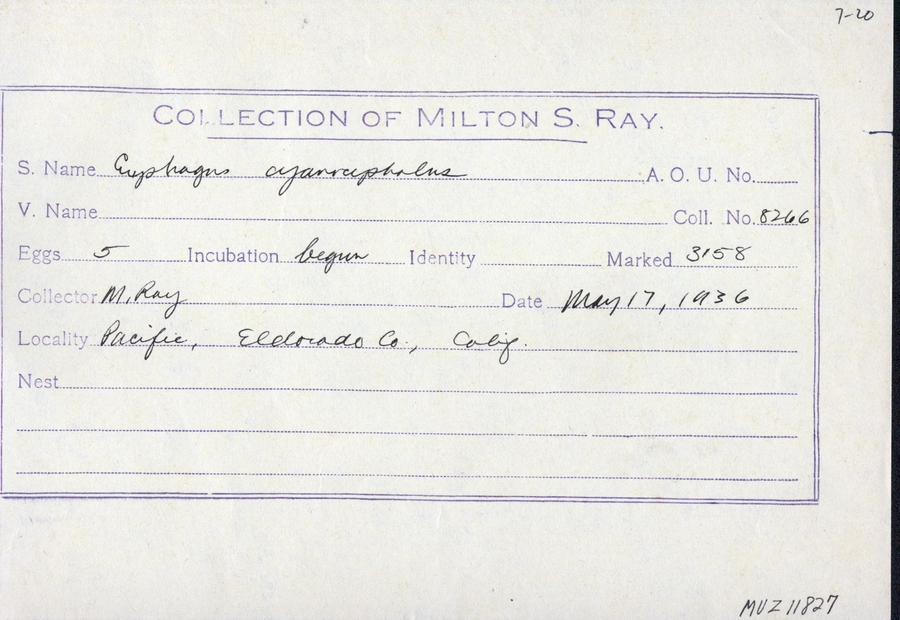 7-20
COLLECTION OF MILTON S. RAY.
S. Name Euphagus cyanocephalus A. O. U. No.
V. Name Coll. No. 8266
Eggs 5 Incubation begun Identity Marked 3158
Collector M. Ray Date May 17, 1936
Locality Pacific, Eldorado Co., Calif.
Nest
MVZ 11827